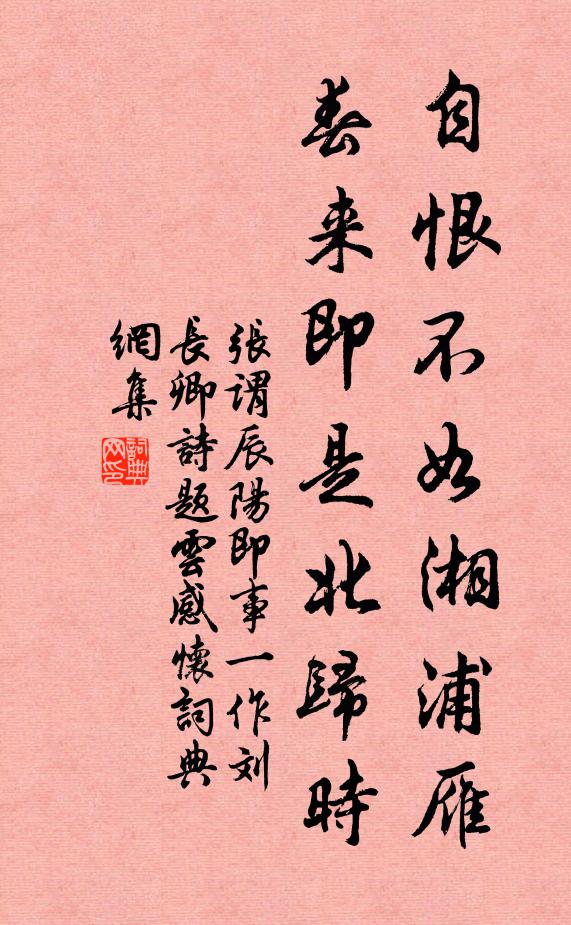 自恨不如湘浦雁
春来即是北歸時
張謂辰陽即事一作刘
長卿詩題雲感懷詞典
網集
詞典
网印